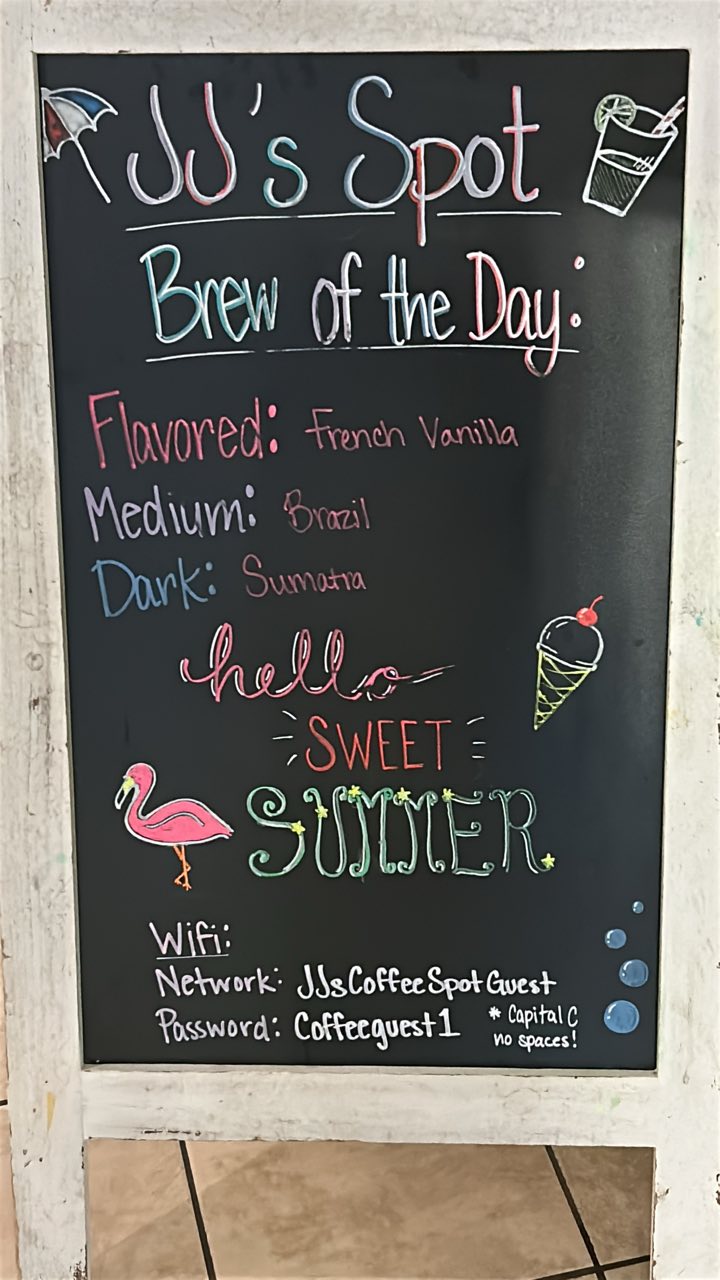 JJ's Spot
Brew of the Day:
Flavored: French Vanilla
Medium: Brazil
Dark: Sumatra
hello
SWEET
SUMMER
Wifi:
Network: JJsCoffeeSpotGuest
Password: Coffeeguest1 * Capital C
no spaces!